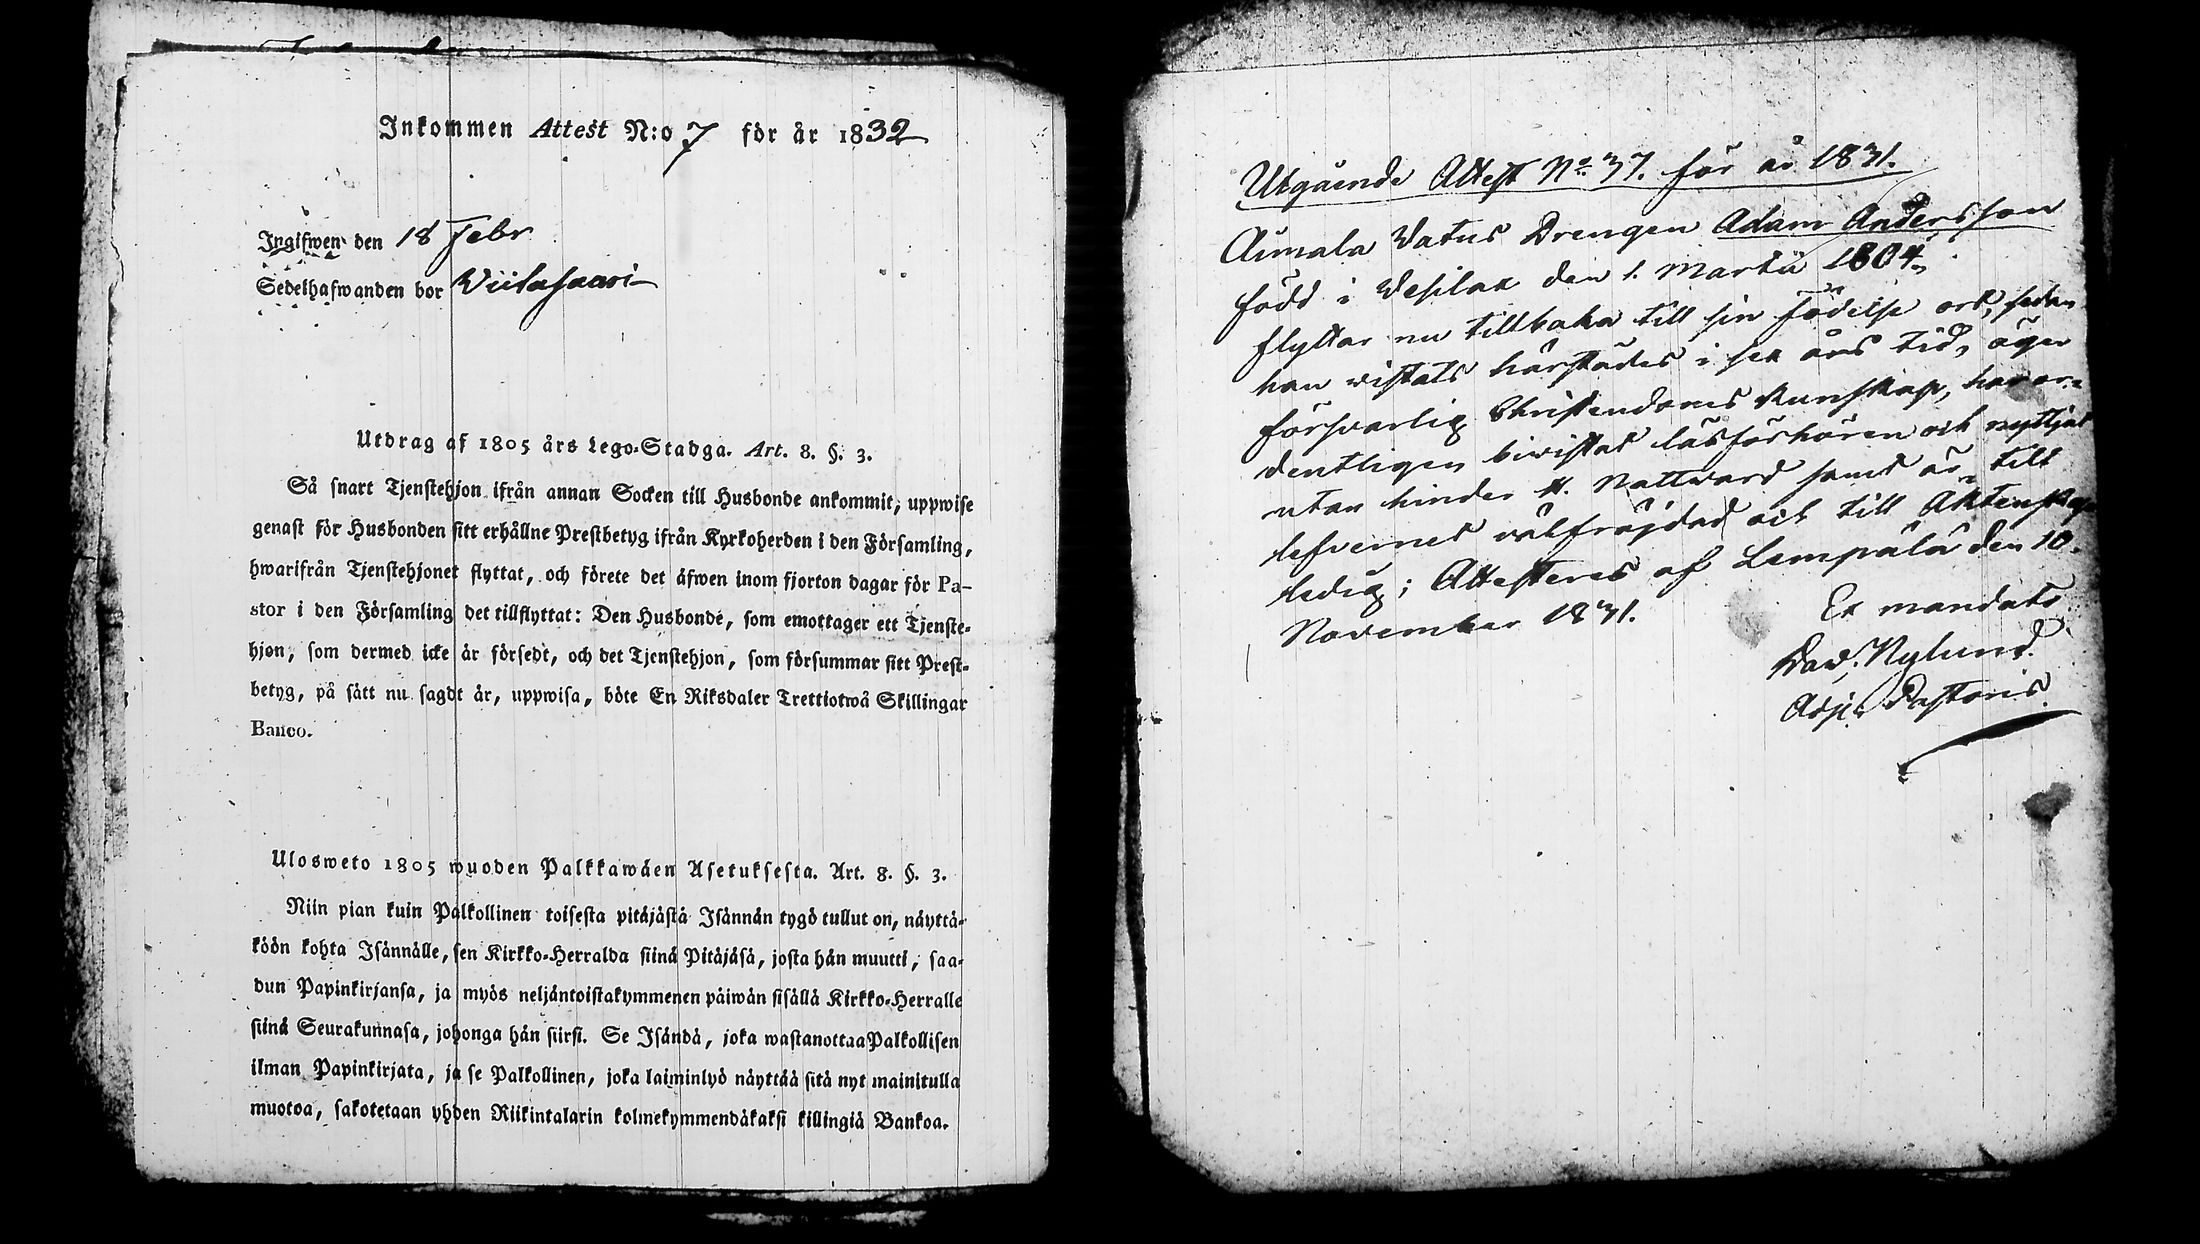 Inkommen Attest N:o 7 för år 1832
Ingifwen den 18 Febr
Sedelhafwanden bor Wiitasaari
Utdrag af 1805 års Lego-Stadga. Art. 8. §. 3.
Så snart Tjenstehjon ifrån annan Socken till Husbonde ankommit, uppwise
genast för Husbonden sitt erhållne Prestbetyg ifrån Kyrkoherden i den Församling,
hwarifrån Tjenstehjonet flyttat, och förete det äfwen inom fjorton dagar för Pa-
stor i den Församling det tillflyttat: Den Husbonde, som emottager ett Tjenste-
hjon, som dermed icke är försedt, och det Tjenstehjon, som försummar sitt Prest-
betyg, på sätt nu sagdt är, uppwisa, böte En Riksdaler Trettiotwå Skillingar
Banco.
Ulosweto 1805 wuoden Palkkawäen Asetuksesta. Art. 8. §. 3.
Niin pian kuin Palkollinen toisesta pitäjästä Isännän tygö tullut on, näyttä-
köön kohta Isännälle, sen Kirkko-Herralda siinä Pitäjäsä, josta hän muutti, saa-
dun Papinkirjansa, ja myös neljäntoistakymmenen päiwän sisällä Kirkko-Herralle
siinä Seurakunnasa, johonga hän siirsi. Se Isändä, joka wastanottaa Palkollisen
ilman Papinkirjata, ja se Palkollinen, joka laiminlyö näyttää sitä nyt mainitulla
muotoa, sakotetaan yhden Riikintalarin kolmekymmendäkaksi killingiä Bankoa.
Utgående Attest No 37. för år 1831.
Aimala Watus Drengen Adam Andersson
född i Wesilax den 1. Martii 1804,
flyttar nu tillbaka till sin födelse ort, sedan
han wistats härstädes i sex års tid, äger
försvarlig Christendoms kunskap, har or-
dentligen biwistat läsförhören och nyttjat
utan hinder H. Nattward samt är till
lefvernet wälfräjdad och till Äktenskap
ledig; Attesteras af Lempälä den 10.
November 1831.
Ex mandato
Dav. Nylund.
Adj. Pastoris.